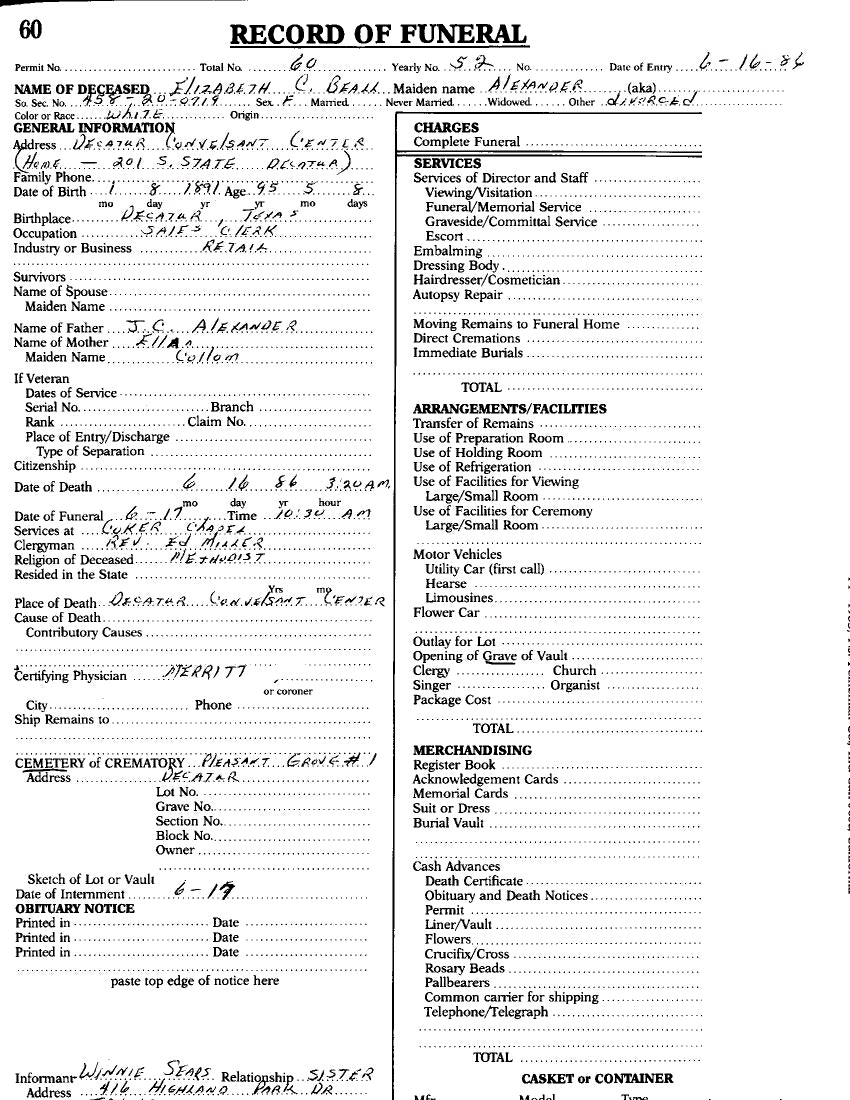 60
RECORD OF FUNERAL
Permit No. Total No. 60 Yearly No. 52 No. Date of Entry 6-16-86
NAME OF DECEASED ELIZABETH C. BEALL Maiden name ALEXANDER (aka)
So. Sec. No. 458-20-0719 Sex F Married Never Married Widowed Other divorced
Color or Race WHITE Origin
GENERAL INFORMATION
Address DECATUR CONVELSANT CENTER
(HOME — 201 S. STATE DECATUR)
Family Phone
Date of Birth 1 8 1891 Age 95 5 8
mo day yr yr mo days
Birthplace DECATUR, TEXAS
Occupation SALES CLERK
Industry or Business RETAIL
Survivors
Name of Spouse
Maiden Name
Name of Father J.C. ALEXANDER
Name of Mother Ella
Maiden Name Collom
If Veteran
Dates of Service
Serial No. Branch
Rank Claim No.
Place of Entry/Discharge
Type of Separation
Citizenship
Date of Death 6 16 86 3:20 AM
mo day yr hour
Date of Funeral 6-17 Time 10:30 AM
Services at COKER CHAPEL
Clergyman REV. Ed MILLER
Religion of Deceased METHODIST
Resided in the State
Yrs mo
Place of Death DECATUR CONVELSANT CENTER
Cause of Death
Contributory Causes
Certifying Physician MERRITT
or coroner
City Phone
Ship Remains to
CEMETERY of CREMATORY PLEASANT GROVE #1
Address DECATUR
Lot No.
Grave No.
Section No.
Block No.
Owner
Sketch of Lot or Vault
Date of Internment 6-17
OBITUARY NOTICE
Printed in Date
Printed in Date
Printed in Date
paste top edge of notice here
Informant WINNIE SEARS Relationship SISTER
Address 416 HIGHLAND PARK DR
CHARGES
Complete Funeral
SERVICES
Services of Director and Staff
Viewing/Visitation
Funeral/Memorial Service
Graveside/Committal Service
Escort
Embalming
Dressing Body
Hairdresser/Cosmetician
Autopsy Repair
Moving Remains to Funeral Home
Direct Cremations
Immediate Burials
TOTAL
ARRANGEMENTS/FACILITIES
Transfer of Remains
Use of Preparation Room
Use of Holding Room
Use of Refrigeration
Use of Facilities for Viewing
Large/Small Room
Use of Facilities for Ceremony
Large/Small Room
Motor Vehicles
Utility Car (first call)
Hearse
Limousines
Flower Car
Outlay for Lot
Opening of Grave of Vault
Clergy Church
Singer Organist
Package Cost
TOTAL
MERCHANDISING
Register Book
Acknowledgement Cards
Memorial Cards
Suit or Dress
Burial Vault
Cash Advances
Death Certificate
Obituary and Death Notices
Permit
Liner/Vault
Flowers
Crucifix/Cross
Rosary Beads
Pallbearers
Common carrier for shipping
Telephone/Telegraph
TOTAL
CASKET or CONTAINER
Mfr. Model Type